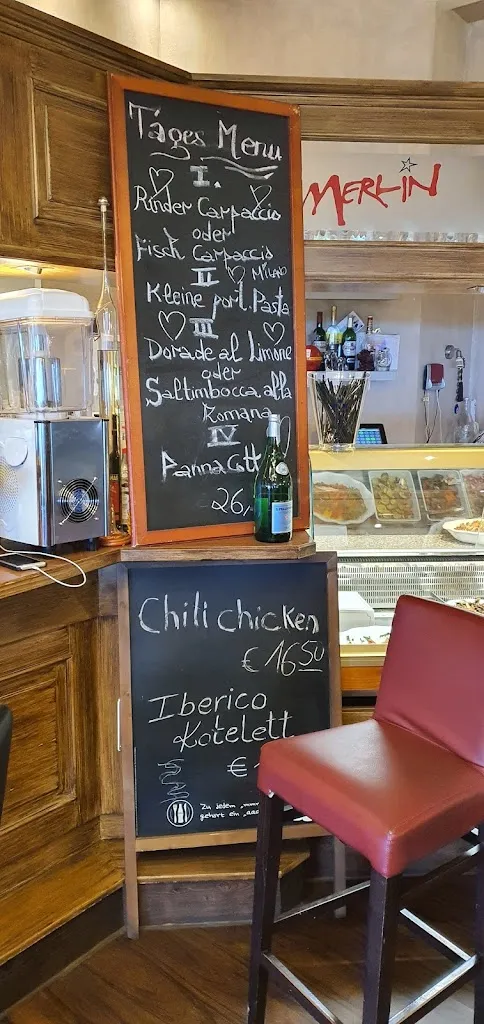 Tages Menu
I.
Rinder Carpaccio
oder
Fisch Carpaccio
II
MILANO
Kleine port. Pasta
III
Dorade al Limone
oder
Saltimbocca alla
Romana
IV
Panna Cott
26,
MERLIN
Chili chicken
€ 16 50
Iberico
Kotelett
€
Zu jedem
gehört ein